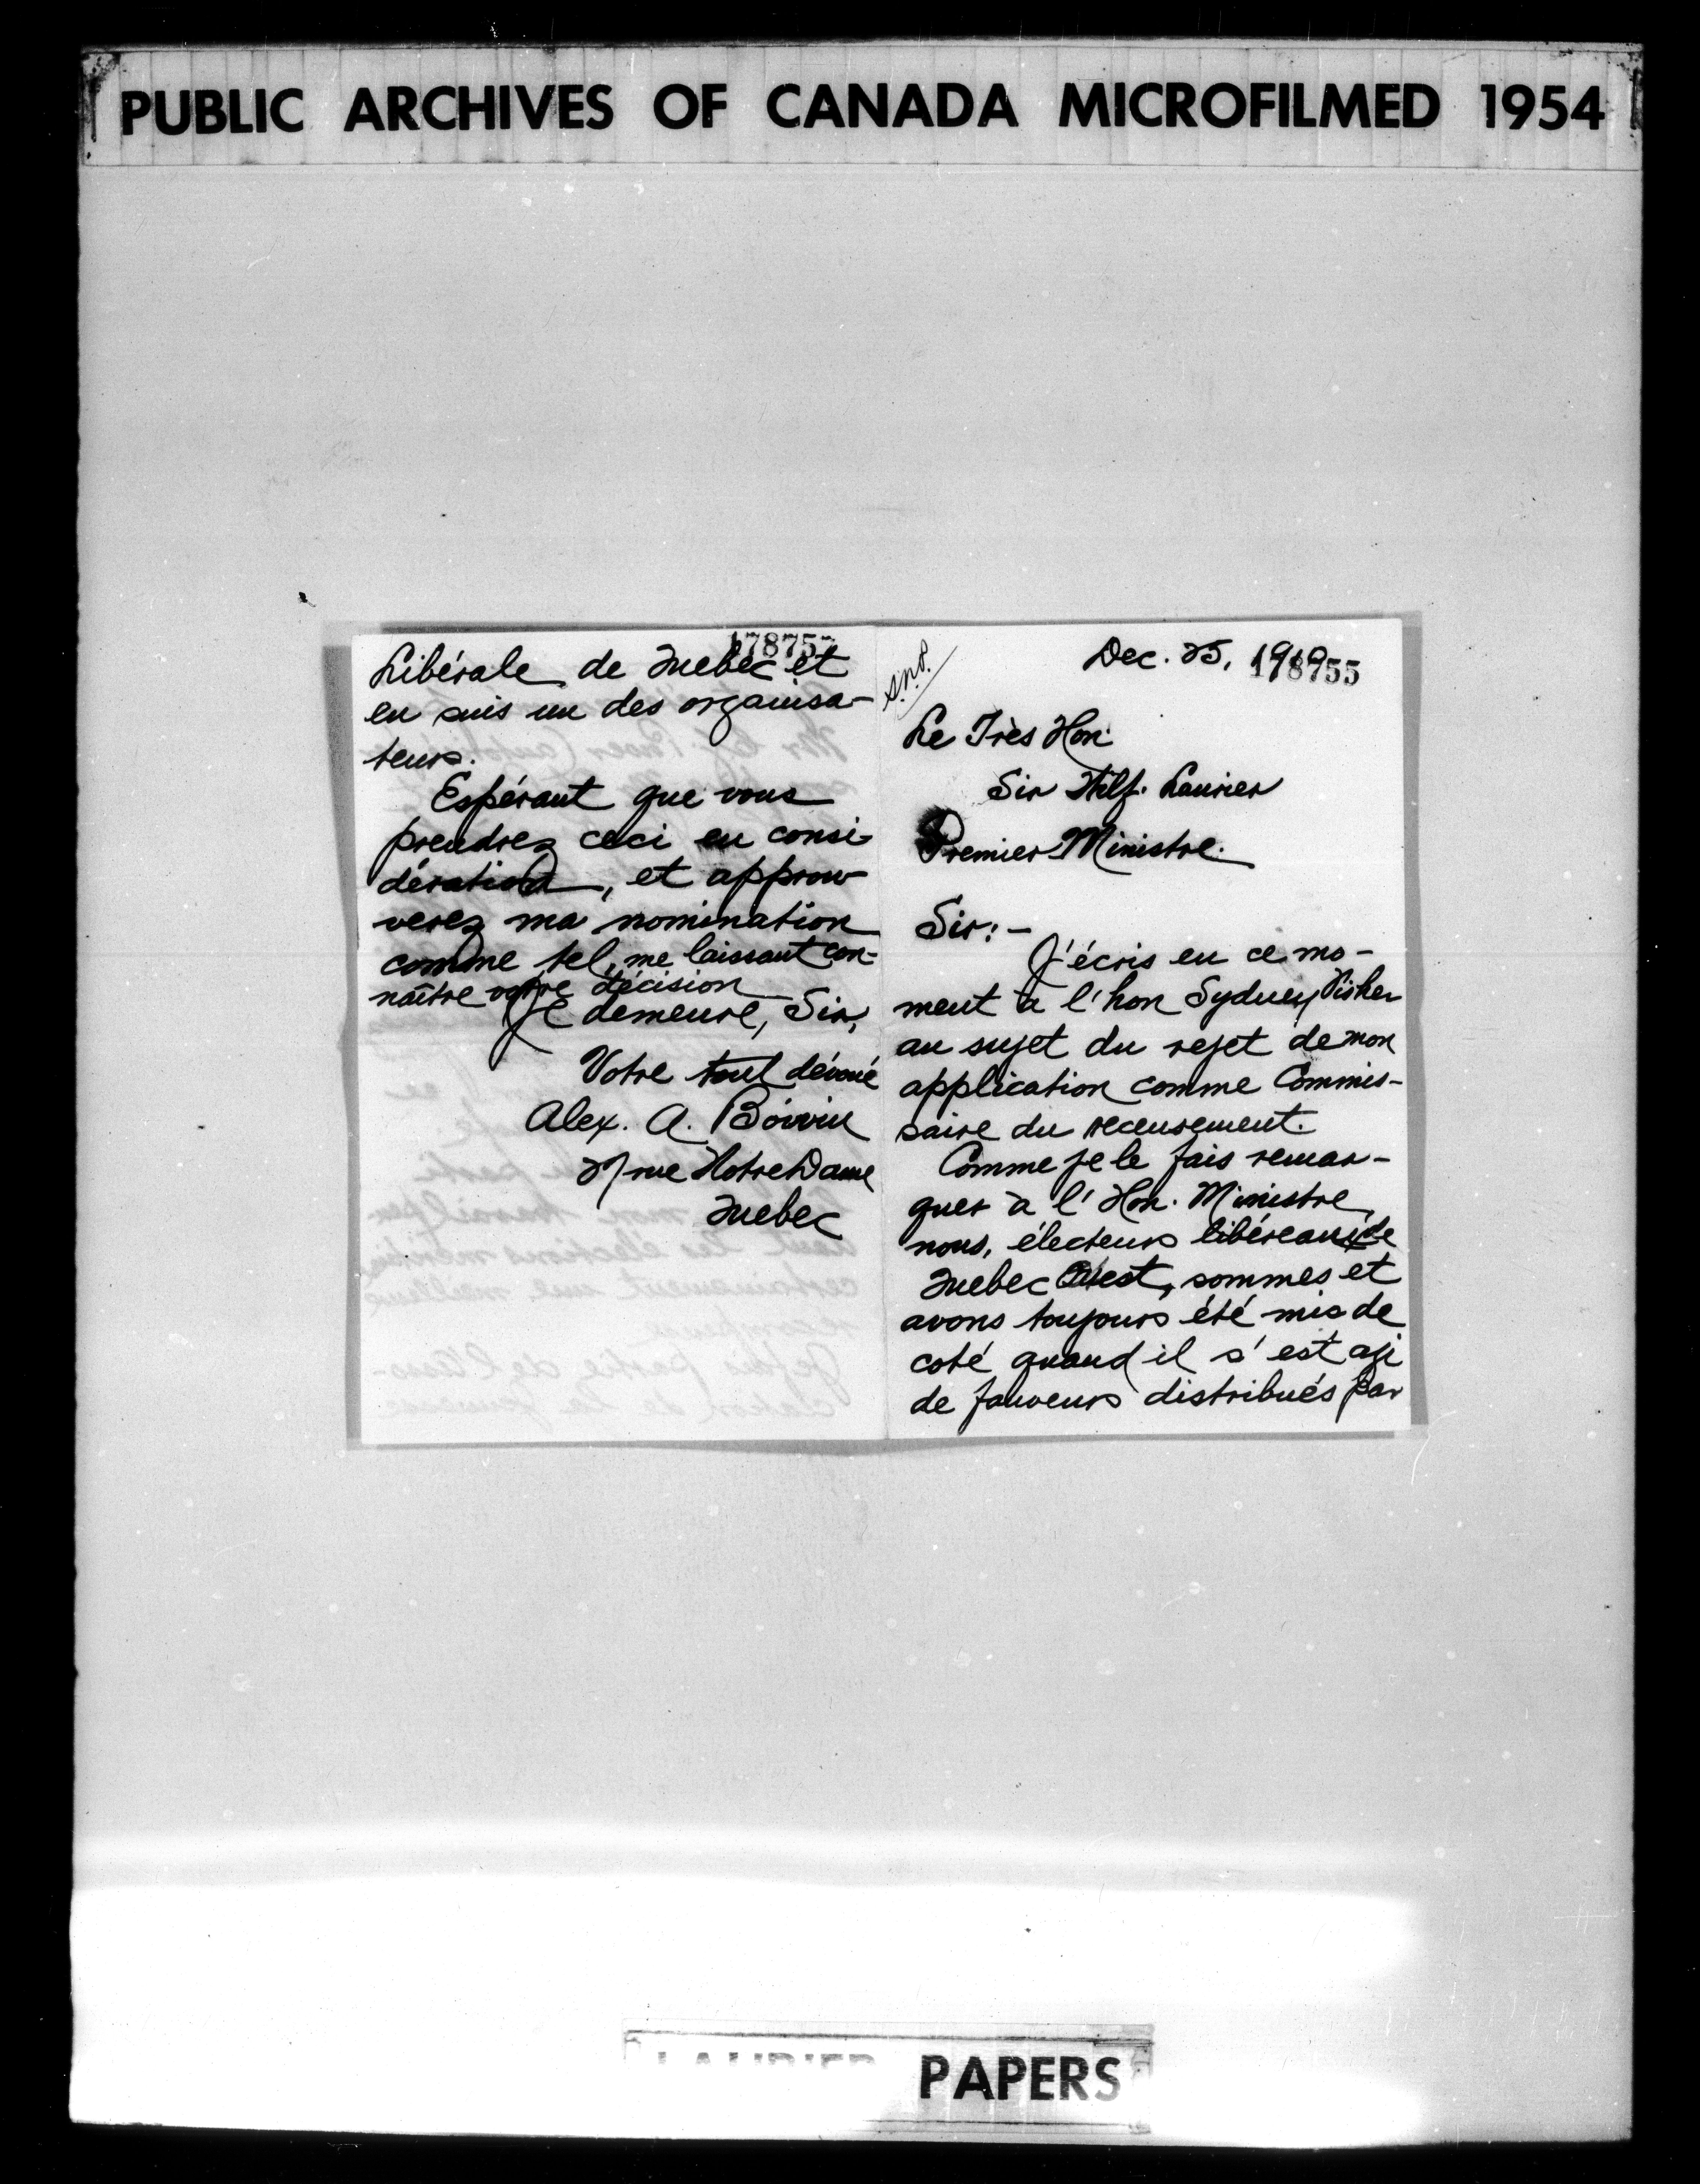 PUBLIC ARCHIVES OF CANADA MICROFILMED 1954
Libérale de Quebec et
en suis un des organisa-
teurs.
Espérant que vous
prendrez ceci en consi-
dération, et approu-
verez ma nomination
comme tel, me laissant con-
naître votre décision
Je demeure, Sir,
Votre tout dévoué
Alex. A. Boivin
rue Notre Dame
Quebec
Dec. 25, 1910
178755
Le Très Hon.
Sir Wilf. Laurier
Premier Ministre.
Sir:-
J'écris en ce mo-
ment à l'hon Sydney Fisher
au sujet du rejet de mon
application comme Commis-
saire du recensement.
Comme je le fais remar-
quer à l'Hon. Ministre,
nous, électeurs libéreaux de
Quebec Ouest, sommes et
avons toujours été mis de
coté quand il s'est agi
de faveurs distribués par
PAPERS